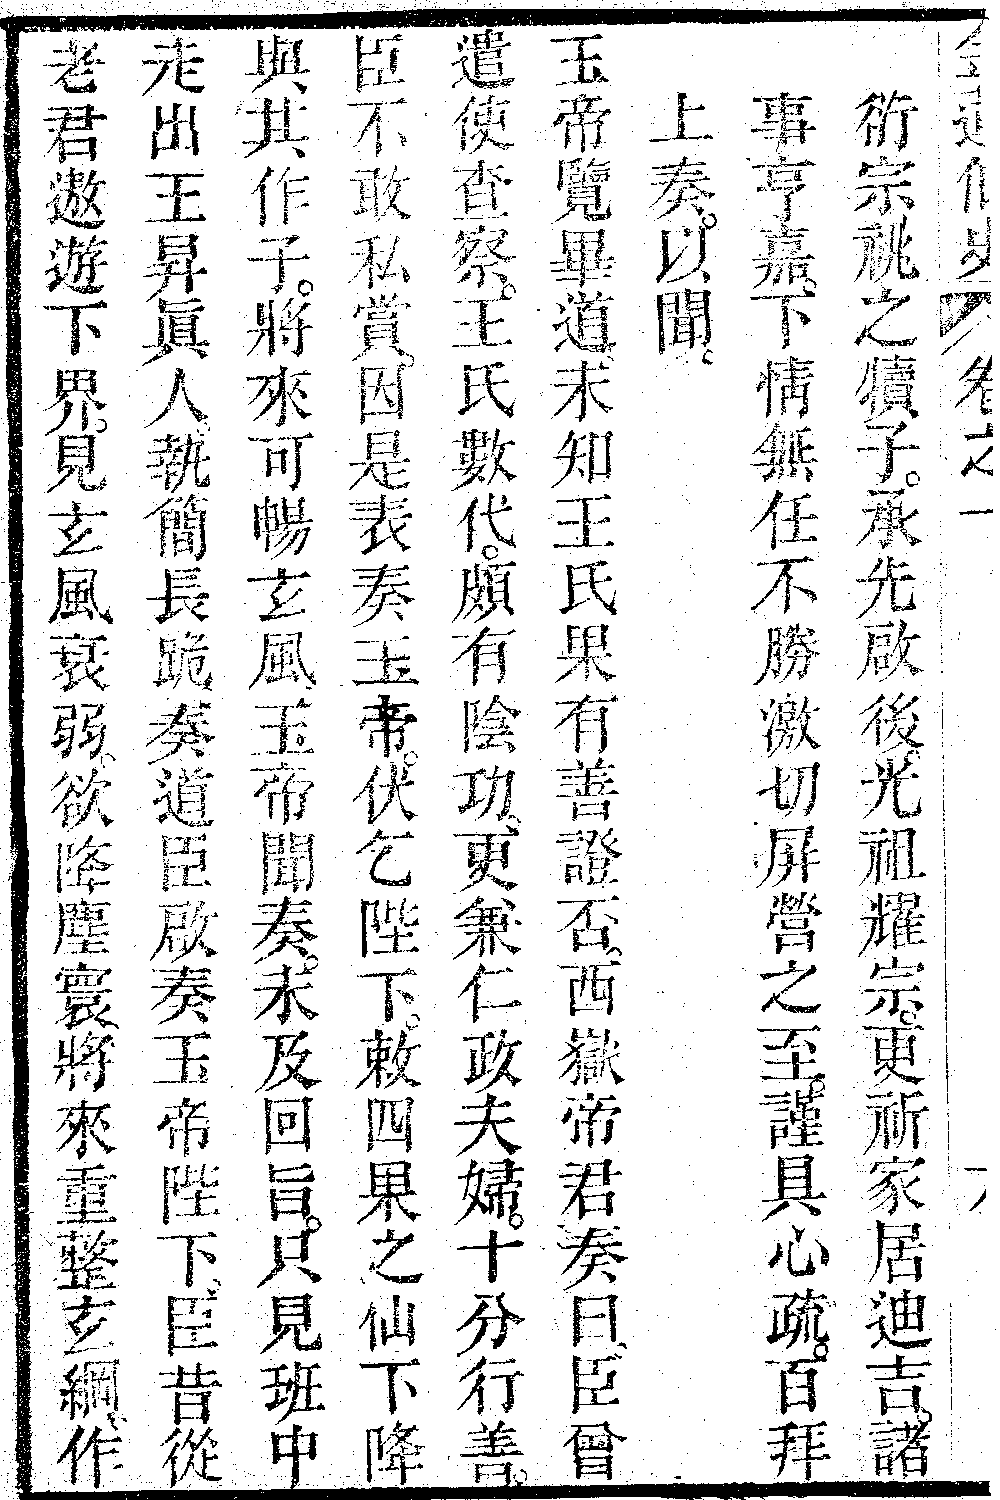 衍宗祧之犢子。承先啟後。光祖耀宗。更祈家居迪吉。諸
事亨嘉。下情無任不勝激切屏營之至。謹具心疏。百拜
上奏。以聞。
玉帝覽畢道、未知王氏果有善證否。西嶽帝君奏曰、臣曾
遣使查察。王氏數代。頗有陰功、更兼仁政夫婦。十分行善。
臣不敢私賞。因是表奏玉帝。伏乞陛下。敕四果之仙下降
與其作子。將來可暢玄風、玉帝聞奏。未及回旨。只見班中
走出王昇眞人、執簡長跪奏道臣啟奏玉帝陛下、臣昔從
老君遨遊下界。見玄風衰弱。欲降塵寰、將來重整玄綱、作